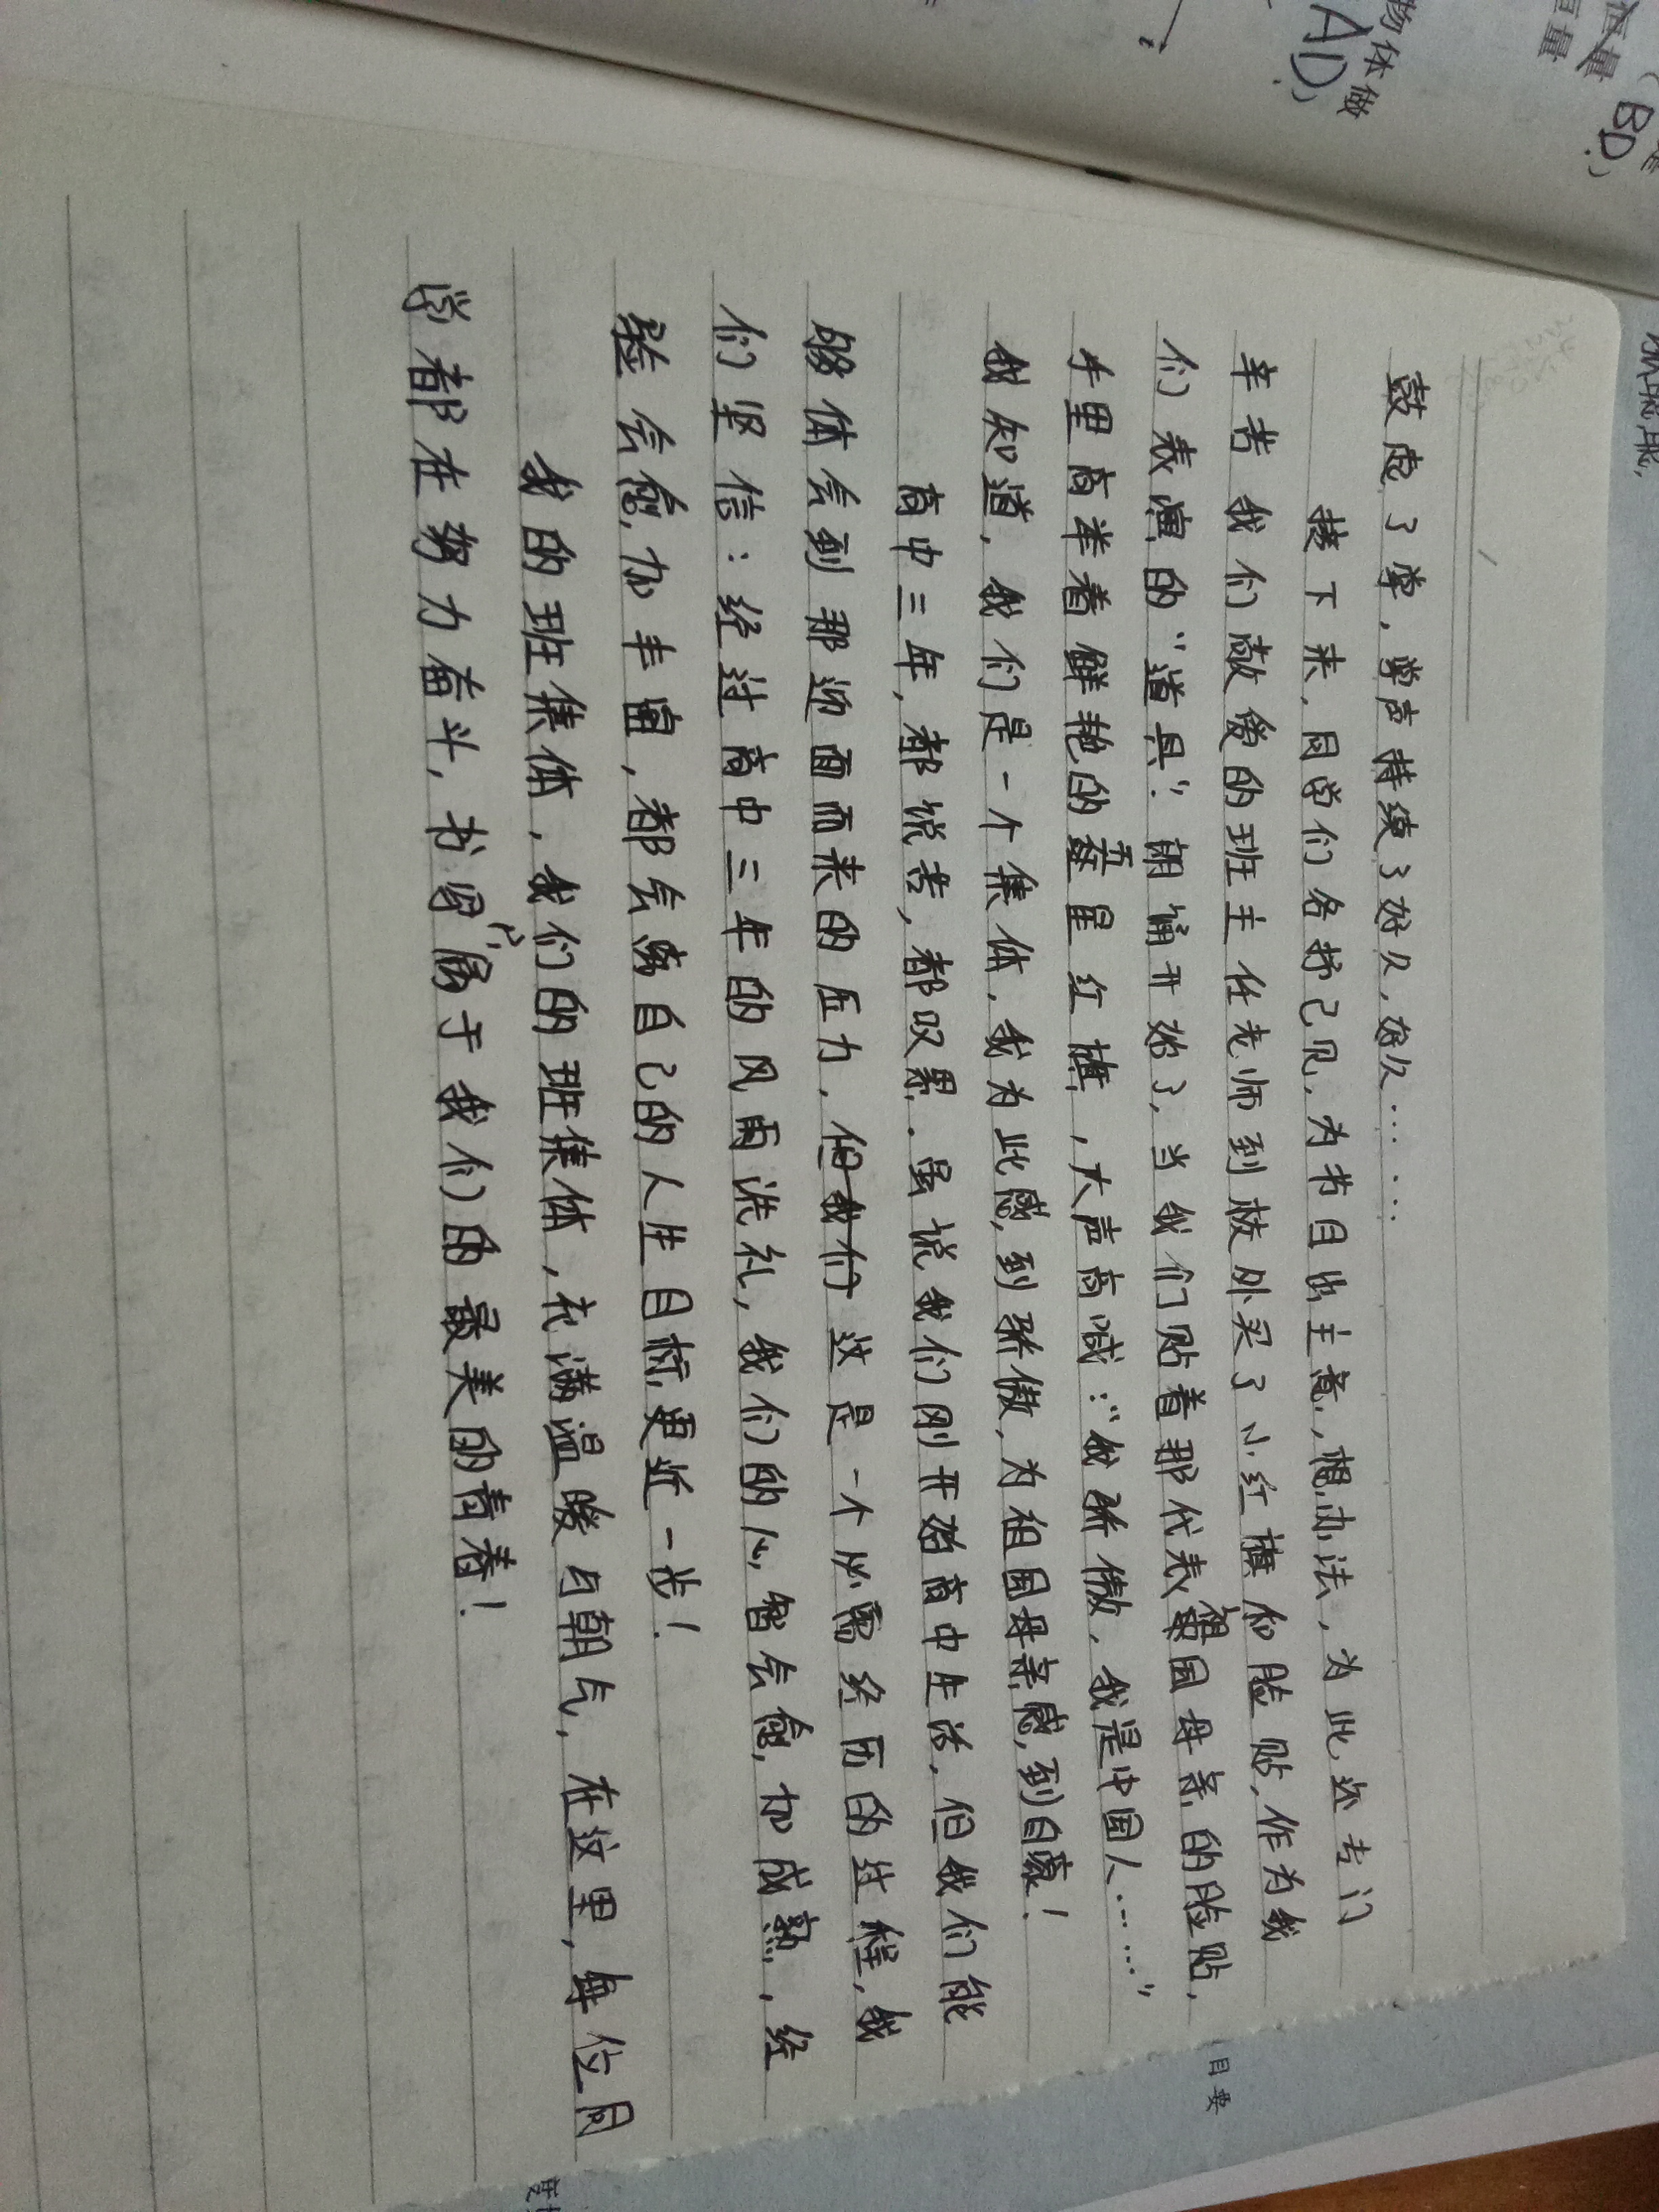 鼓起了掌，掌声持续了好久，好久……
接下来，同学们各抒己见，为节目出主意，想办法，为此还专门
辛苦我们敬爱的班主任老师到校外买了小红旗和脸贴，作为我
们表演的“道具”。朗诵开始了，当我们贴着那代表祖国母亲的脸贴，
手里高举着鲜艳的五星红旗，大声高喊：“我骄傲，我是中国人……”
我知道，我们是一个集体，我为此感到骄傲，为祖国母亲感到自豪！
高中三年，都说苦，都叹累．虽说我们刚开始高中生活，但我们能
够体会到那迎面而来的压力，但这是一个必需经历的过程，我
们坚信：经过高中三年的风雨洗礼，我们的心智会愈加成熟，经
验会愈加丰富，都会离自己的人生目标更近一步！
我的班集体，我们的班集体，充满温暖与朝气，在这里，每位同
学都在努力奋斗，书写属于我们的最美的青春！
物体做
AD）
BD）
目要